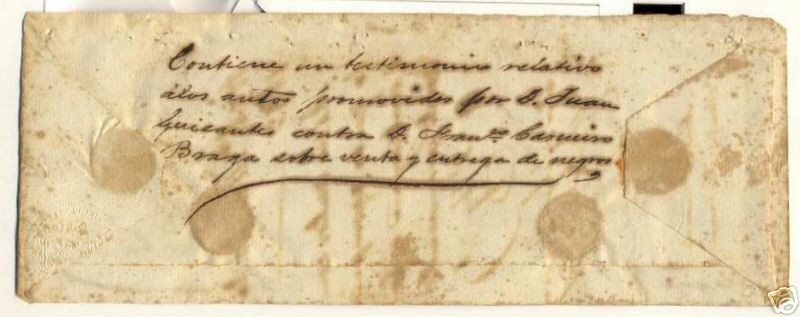 Contiene un testimonio relativo
álos autos promovidos por D. Juan
Guisantes contra D. Franco. Carneiro
Braga sobre venta y entrega de negros
ebY